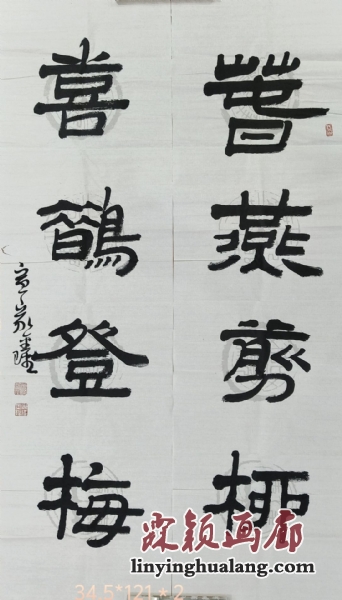 春燕剪柳
喜鵲登梅
霖颖画廊
linyinghualang.com
34.5*121*2